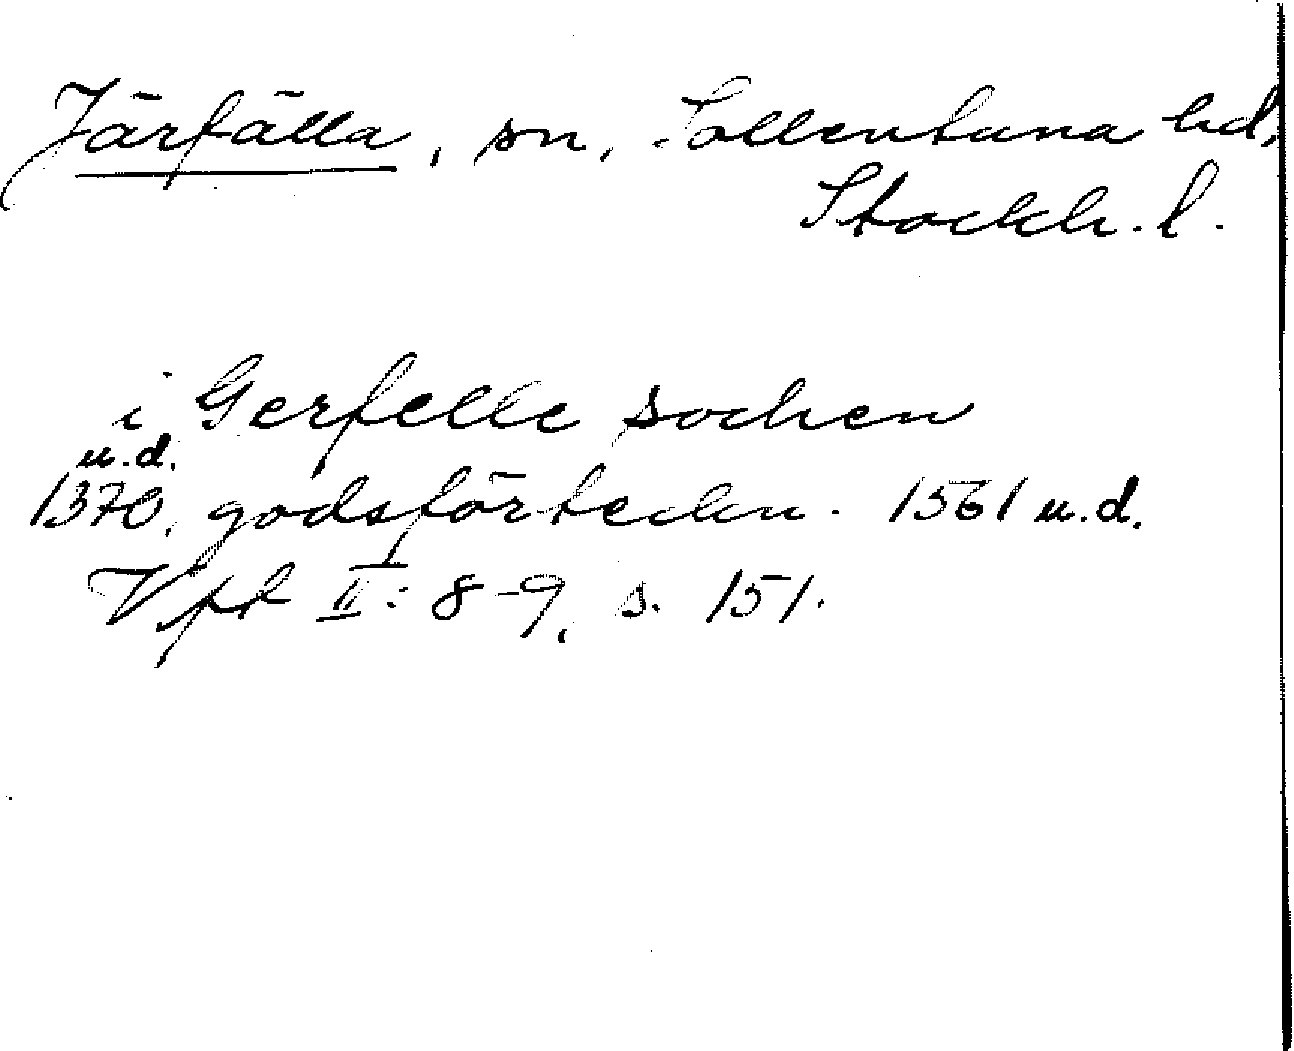 Järfälla, sn, Sollentuna hd,
Stockh. l.
i Gerfelle sochen
u.d.
1370, godsförteckn. 1561 u.d.
Vft II: 8-9, s. 151.